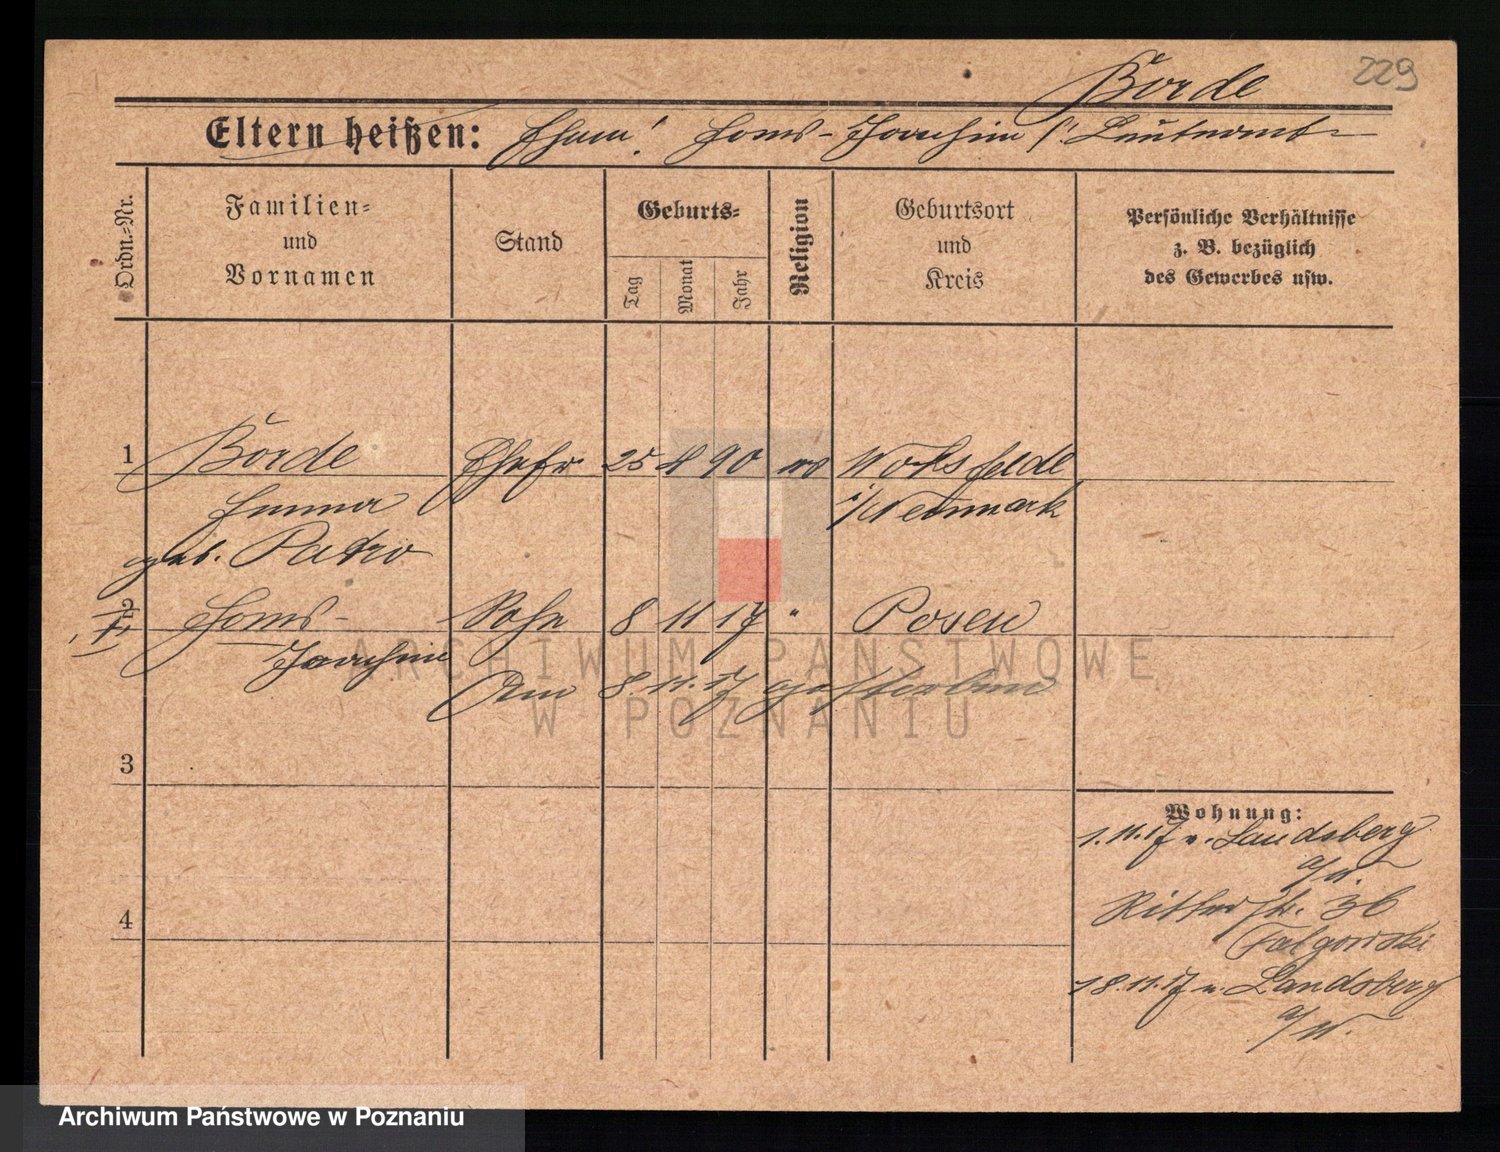 229
Börde
Eltern heißen: Ehem! Hans-Joachim /: Leutnant
Ordn.-Nr.
Familien-
und
Vornamen
Stand
Geburts-
Tag
Monat
Jahr
Religion
Geburtsort
und
Kreis
Persönliche Verhältnisse
z. B. bezüglich
des Gewerbes usw.
1 Börde Ehefr 25 8 90 Woxfelde
Emma i/Neumark
geb. Patro
2 Hans- Sohn 8 11 17 " Posen
Joachim
Am 8.11.17 gestorben
3
4
Wohnung:
1.11.17 v. Landsberg
a/W.
Ritterstr. 36
Falgowski
18.11.17 n. Landsberg
a/W.
ARCHIWUM PAŃSTWOWE
W POZNANIU
Archiwum Państwowe w Poznaniu